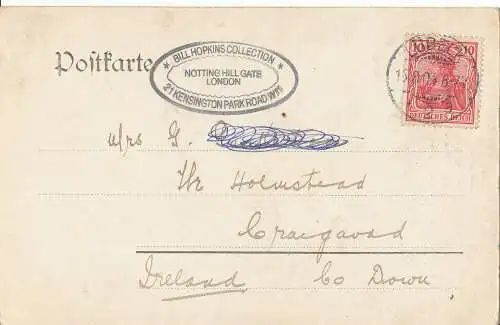 Postkarte
★ BILL HOPKINS COLLECTION ★
NOTTING HILL GATE
LONDON
21 KENSINGTON PARK ROAD W11
10 10
DEUTSCHES REICH
M/rs G.
The Holmstead
Craigavad
Ireland Co Down